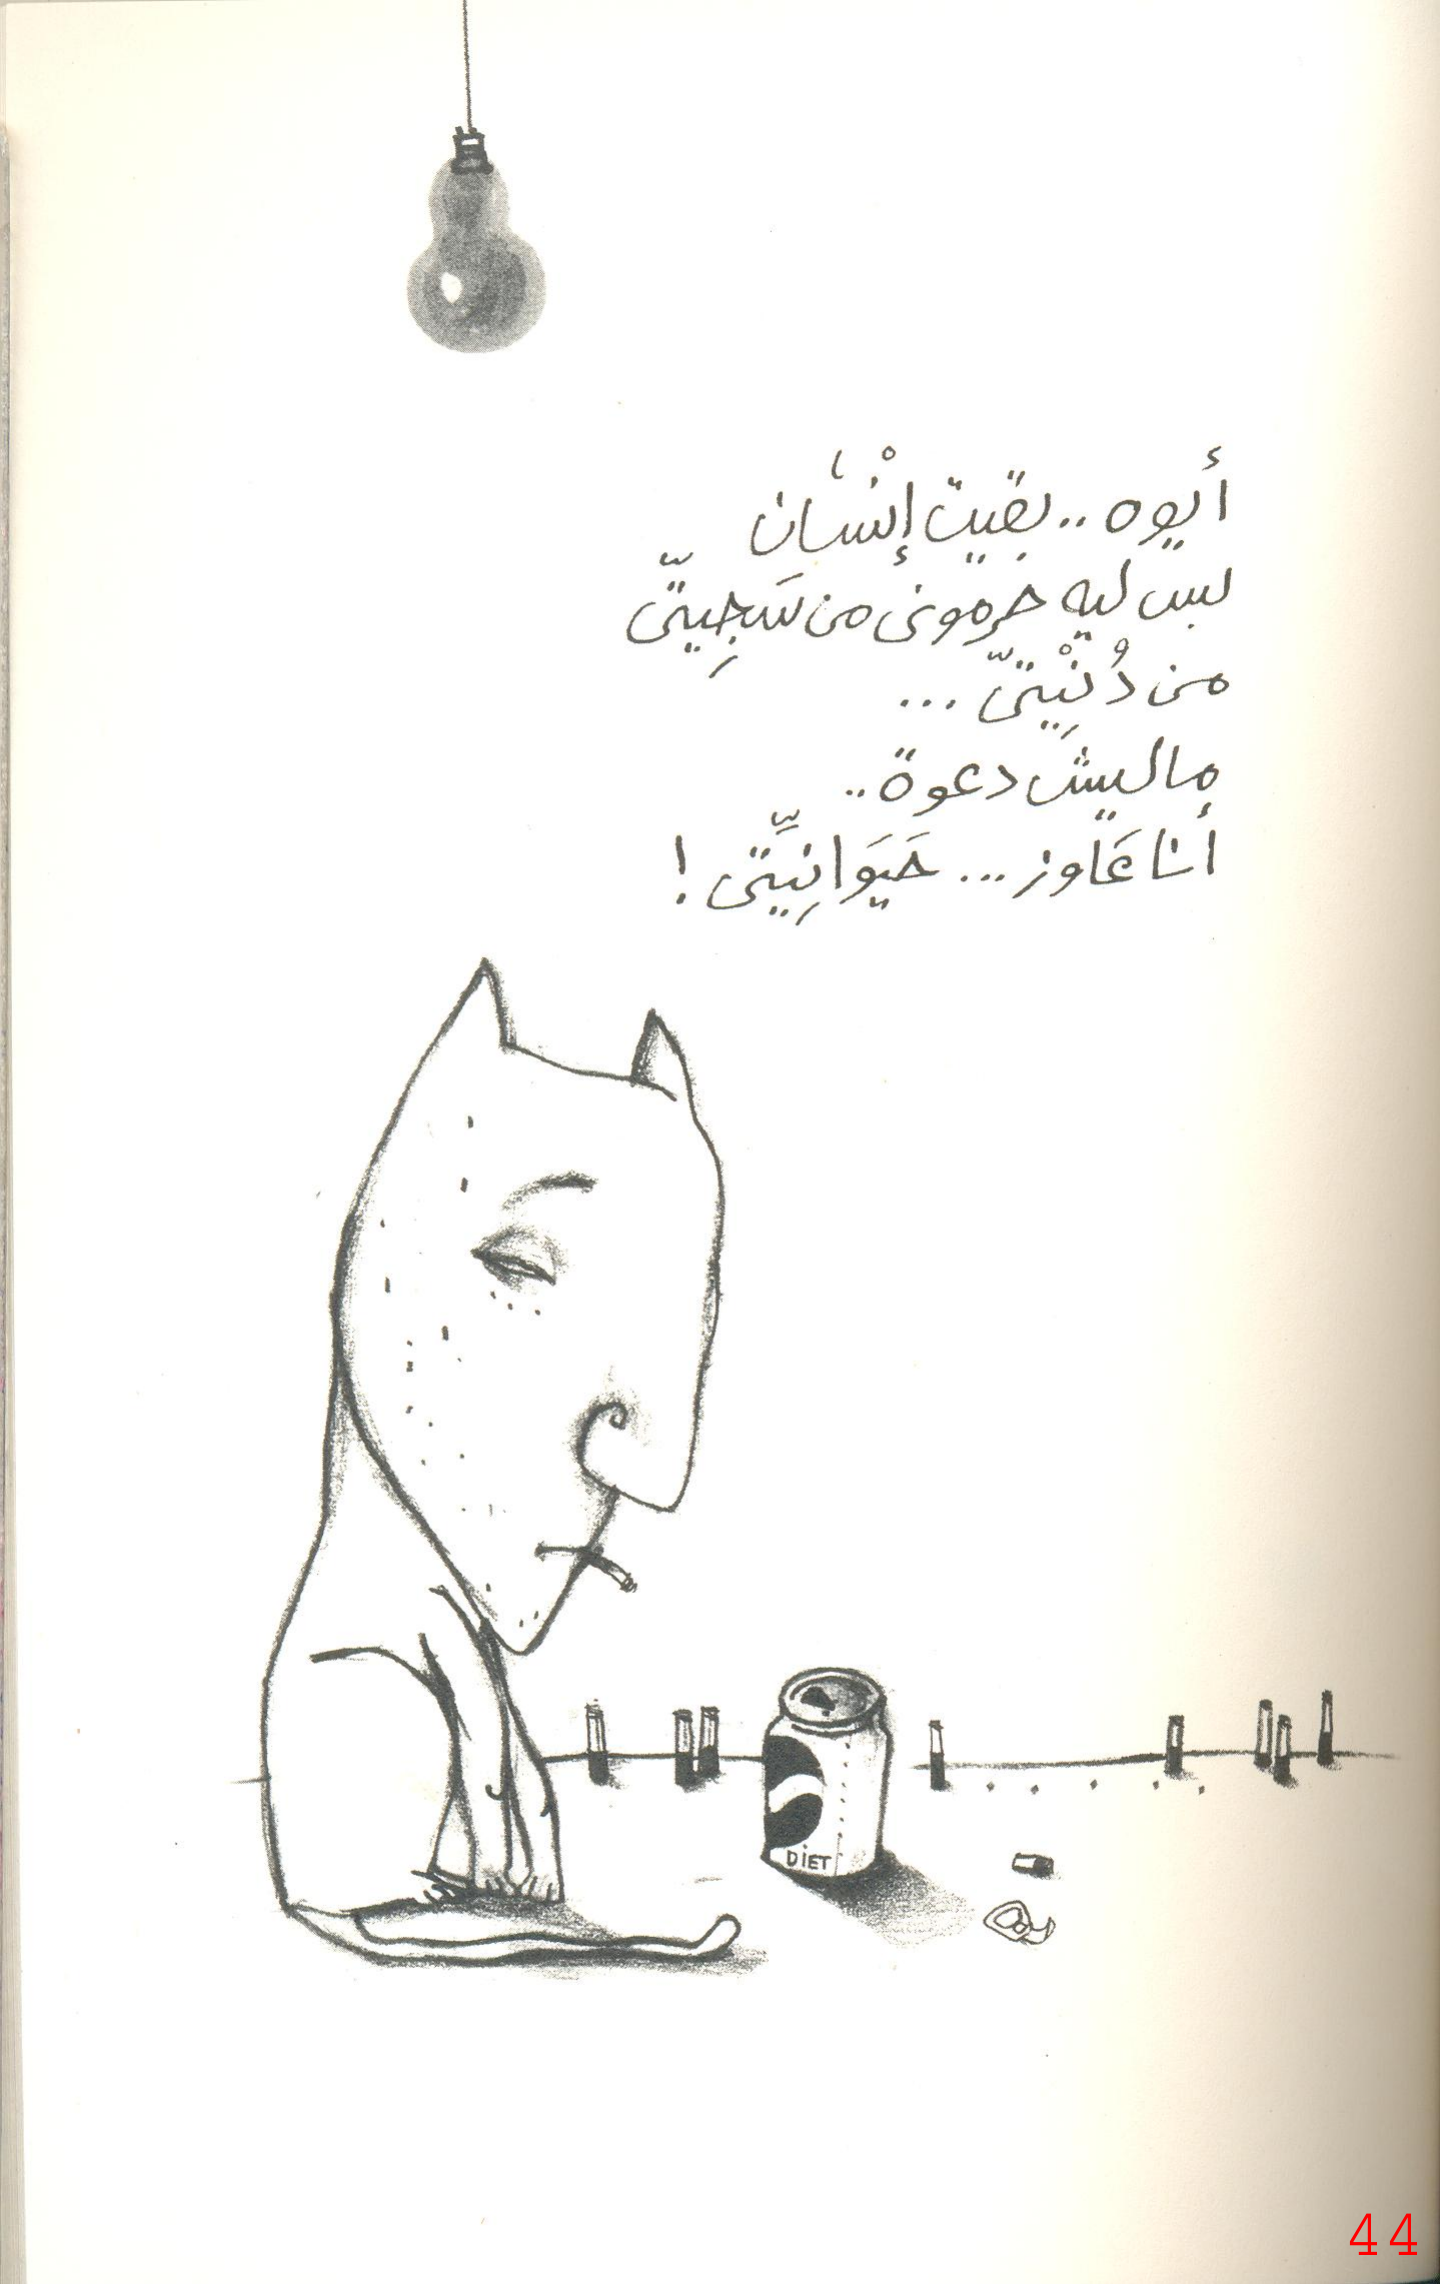 أيوه .. بقيت إنْسَان
بس ليه حرموني من سَجِيتىّ
من دُنْيِتىّ ...
ماليش دعوة ..
أنا عَاوز ... حَيَوَانِيَّتىّ !
DIET
44